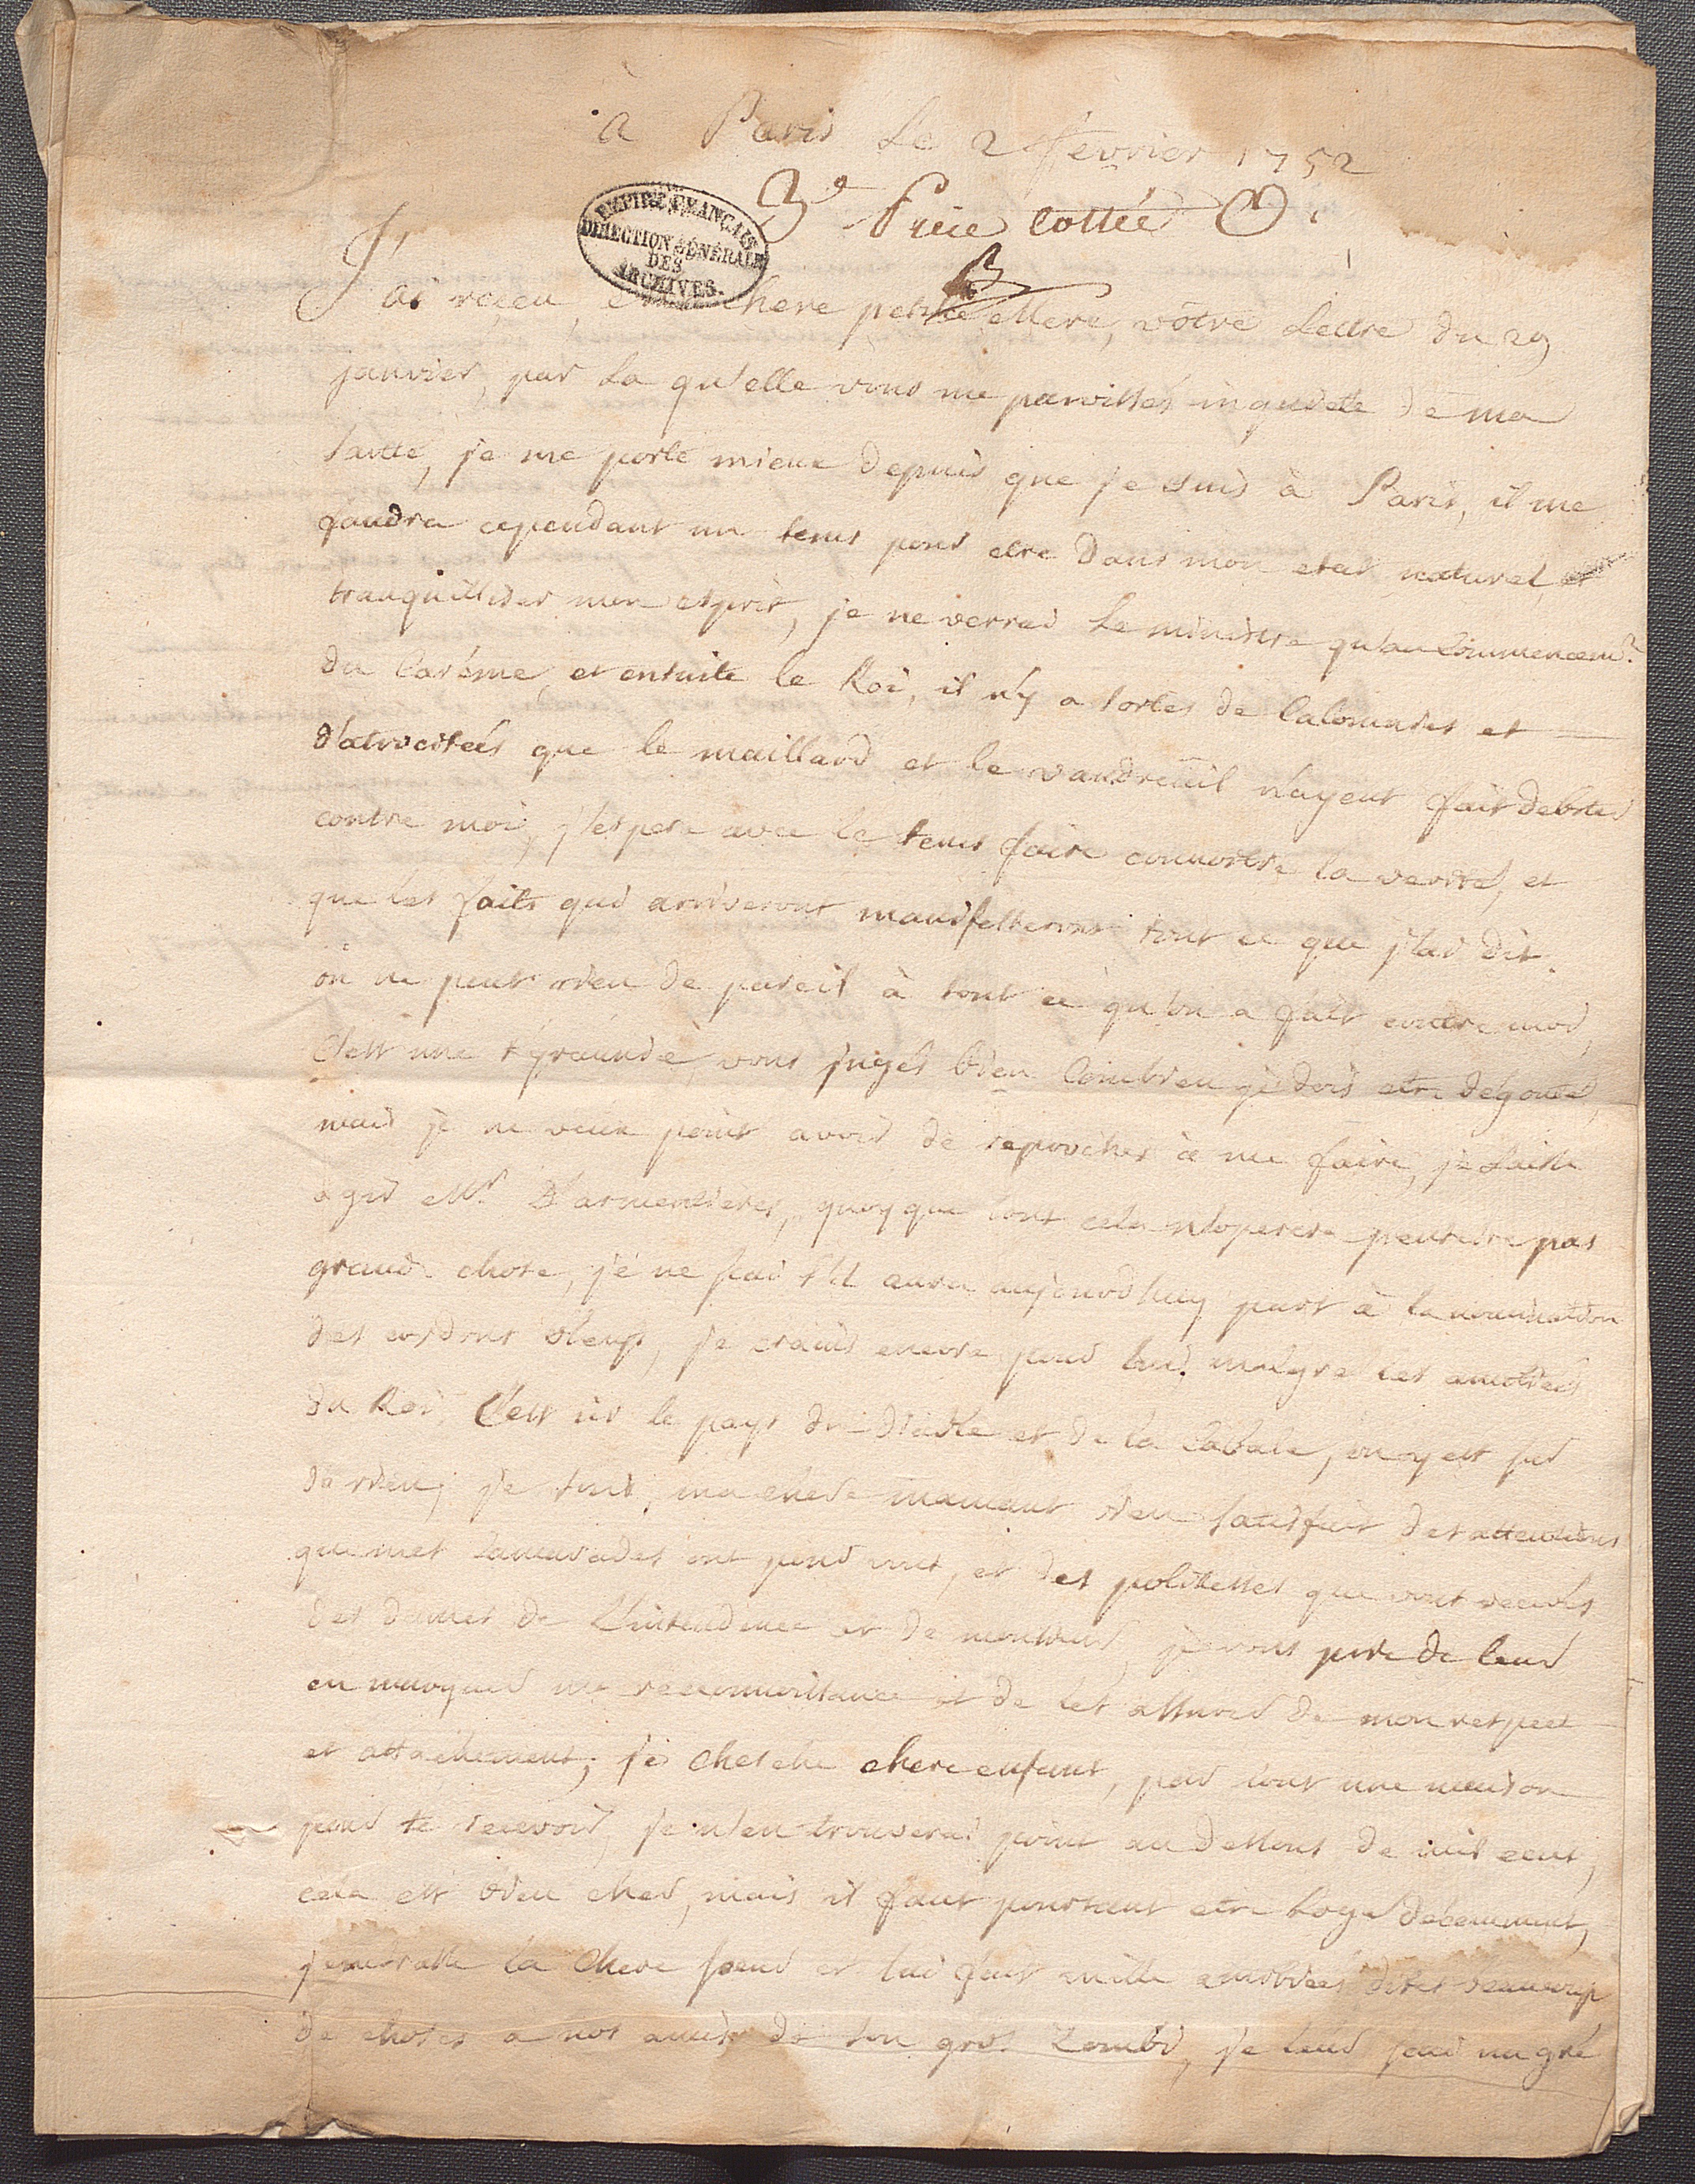 à Paris Le 2 fevrier 1752
3e Piece cottée
EMPIRE FRANÇAIS
DIRECTION GÉNÉRALE
DES
ARCHIVES.
J'ai reçeu, chere petite Mere, vôtre Lettre du 29
janvier, par la qu'elle vous me paroissés inquiette de ma
santé, je me porte mieux depuis que je suis à Paris, il me
faudra cependant un tems pour etre dans mon etat naturel, et
tranquilliser mon esprit, je ne verrai le ministre qu'au Commencemt.
du Carême, et ensuite le Roi, il n'y a sortes de Calomnies et
d'atrocitées que le maillard et le vaudreüil n'ayent fait debiter
contre moi, j'espere avec le tems faire connoitre la verité, et
que les faits qui arriveront manifesteront tout ce que j'ai dit.
on ne peut rien de pareil à tout ce qu'on a fait contre moi,
C'est une tyrannie, vous jugés bien Combien je dois etre degouté,
mais je ne veux point avoir de reproches à me faire, je laisse
agir Mr. D'armentieres, quoyque tout cela n'operera peutetre pas
grand chose, je ne sai s'il aura aujourd'huy part à la nomination
des cordons bleus, je crains encore pour lui, malgré les amitiés
du Roi, C'est ici le pays du diable et de la Cabale, on y est sur
de rien; je suis, ma chere maman bien satisfait des attentions
que mes Camarades ont pour vous, et des politesses que vous recevés
des dames de L'intendence et de monsieur, je vous prie de leur
en marquer ma reconnoissance et de les assurer de mon respect
et attachement; je cherche chere enfant, par tout une maison
pour te recevoir, je n'en trouverai point au dessous de mil ecus,
cela est bien cher, mais il faut pourtant etre logé decemment,
j'embrasse la Chere soeur et lui fait mille amitiées dites beaucoup
de choses a nos amis de ton gros Zombi, je leur sai un gré